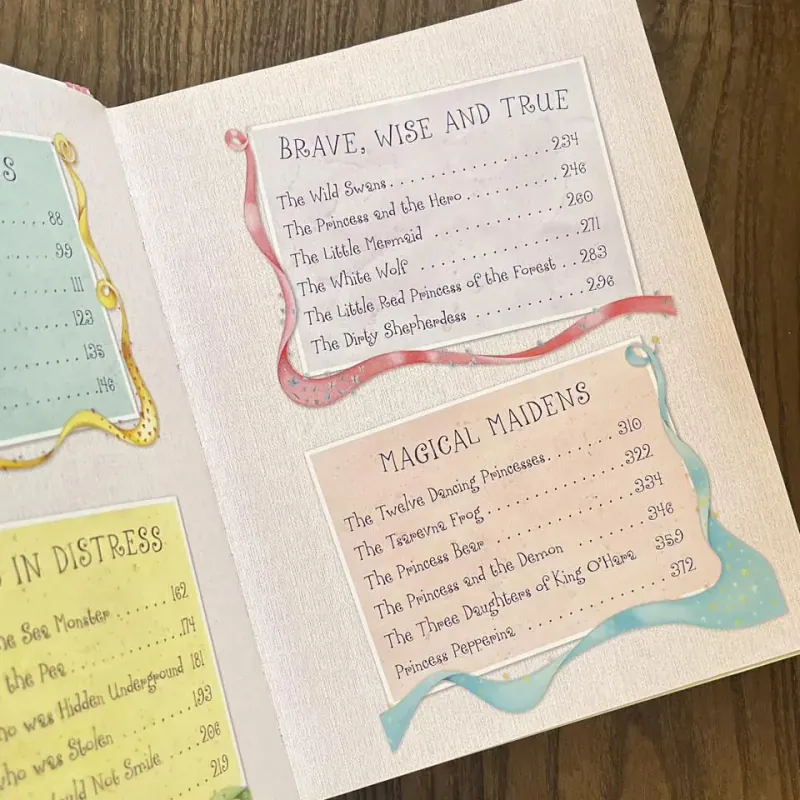 S
88
99
111
123
135
146
IN DISTRESS
Sea Monster ....... 162
the Pea .............. 174
was Hidden Underground 181
who was Stolen ....... 193
Not Smile .... 206
219
BRAVE, WISE AND TRUE
The Wild Swans .................... 234
The Princess and the Hero .......... 246
The Little Mermaid ................ 260
The White Wolf .................... 271
The Little Red Princess of the Forest .. 283
The Dirty Shepherdess ............. 296
MAGICAL MAIDENS
The Twelve Dancing Princesses ....... 310
The Tsarevna Frog ................. 322
The Princess Bear ................. 334
The Princess and the Demon ......... 346
The Three Daughters of King O'Hara 359
Princess Pepperina ................ 372